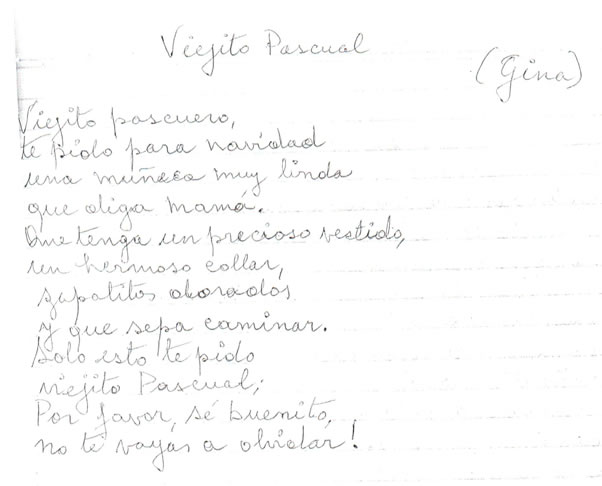 Viejito Pascual
(Gina)
Viejito pascuero,
te pido para navidad
una muñeca muy linda
que diga mamá.
Que tenga un precioso vestido,
un hermoso collar,
zapatitos dorados
y que sepa caminar.
Solo esto te pido
viejito Pascual;
Por favor, sé buenito,
no te vayas a olvidar!